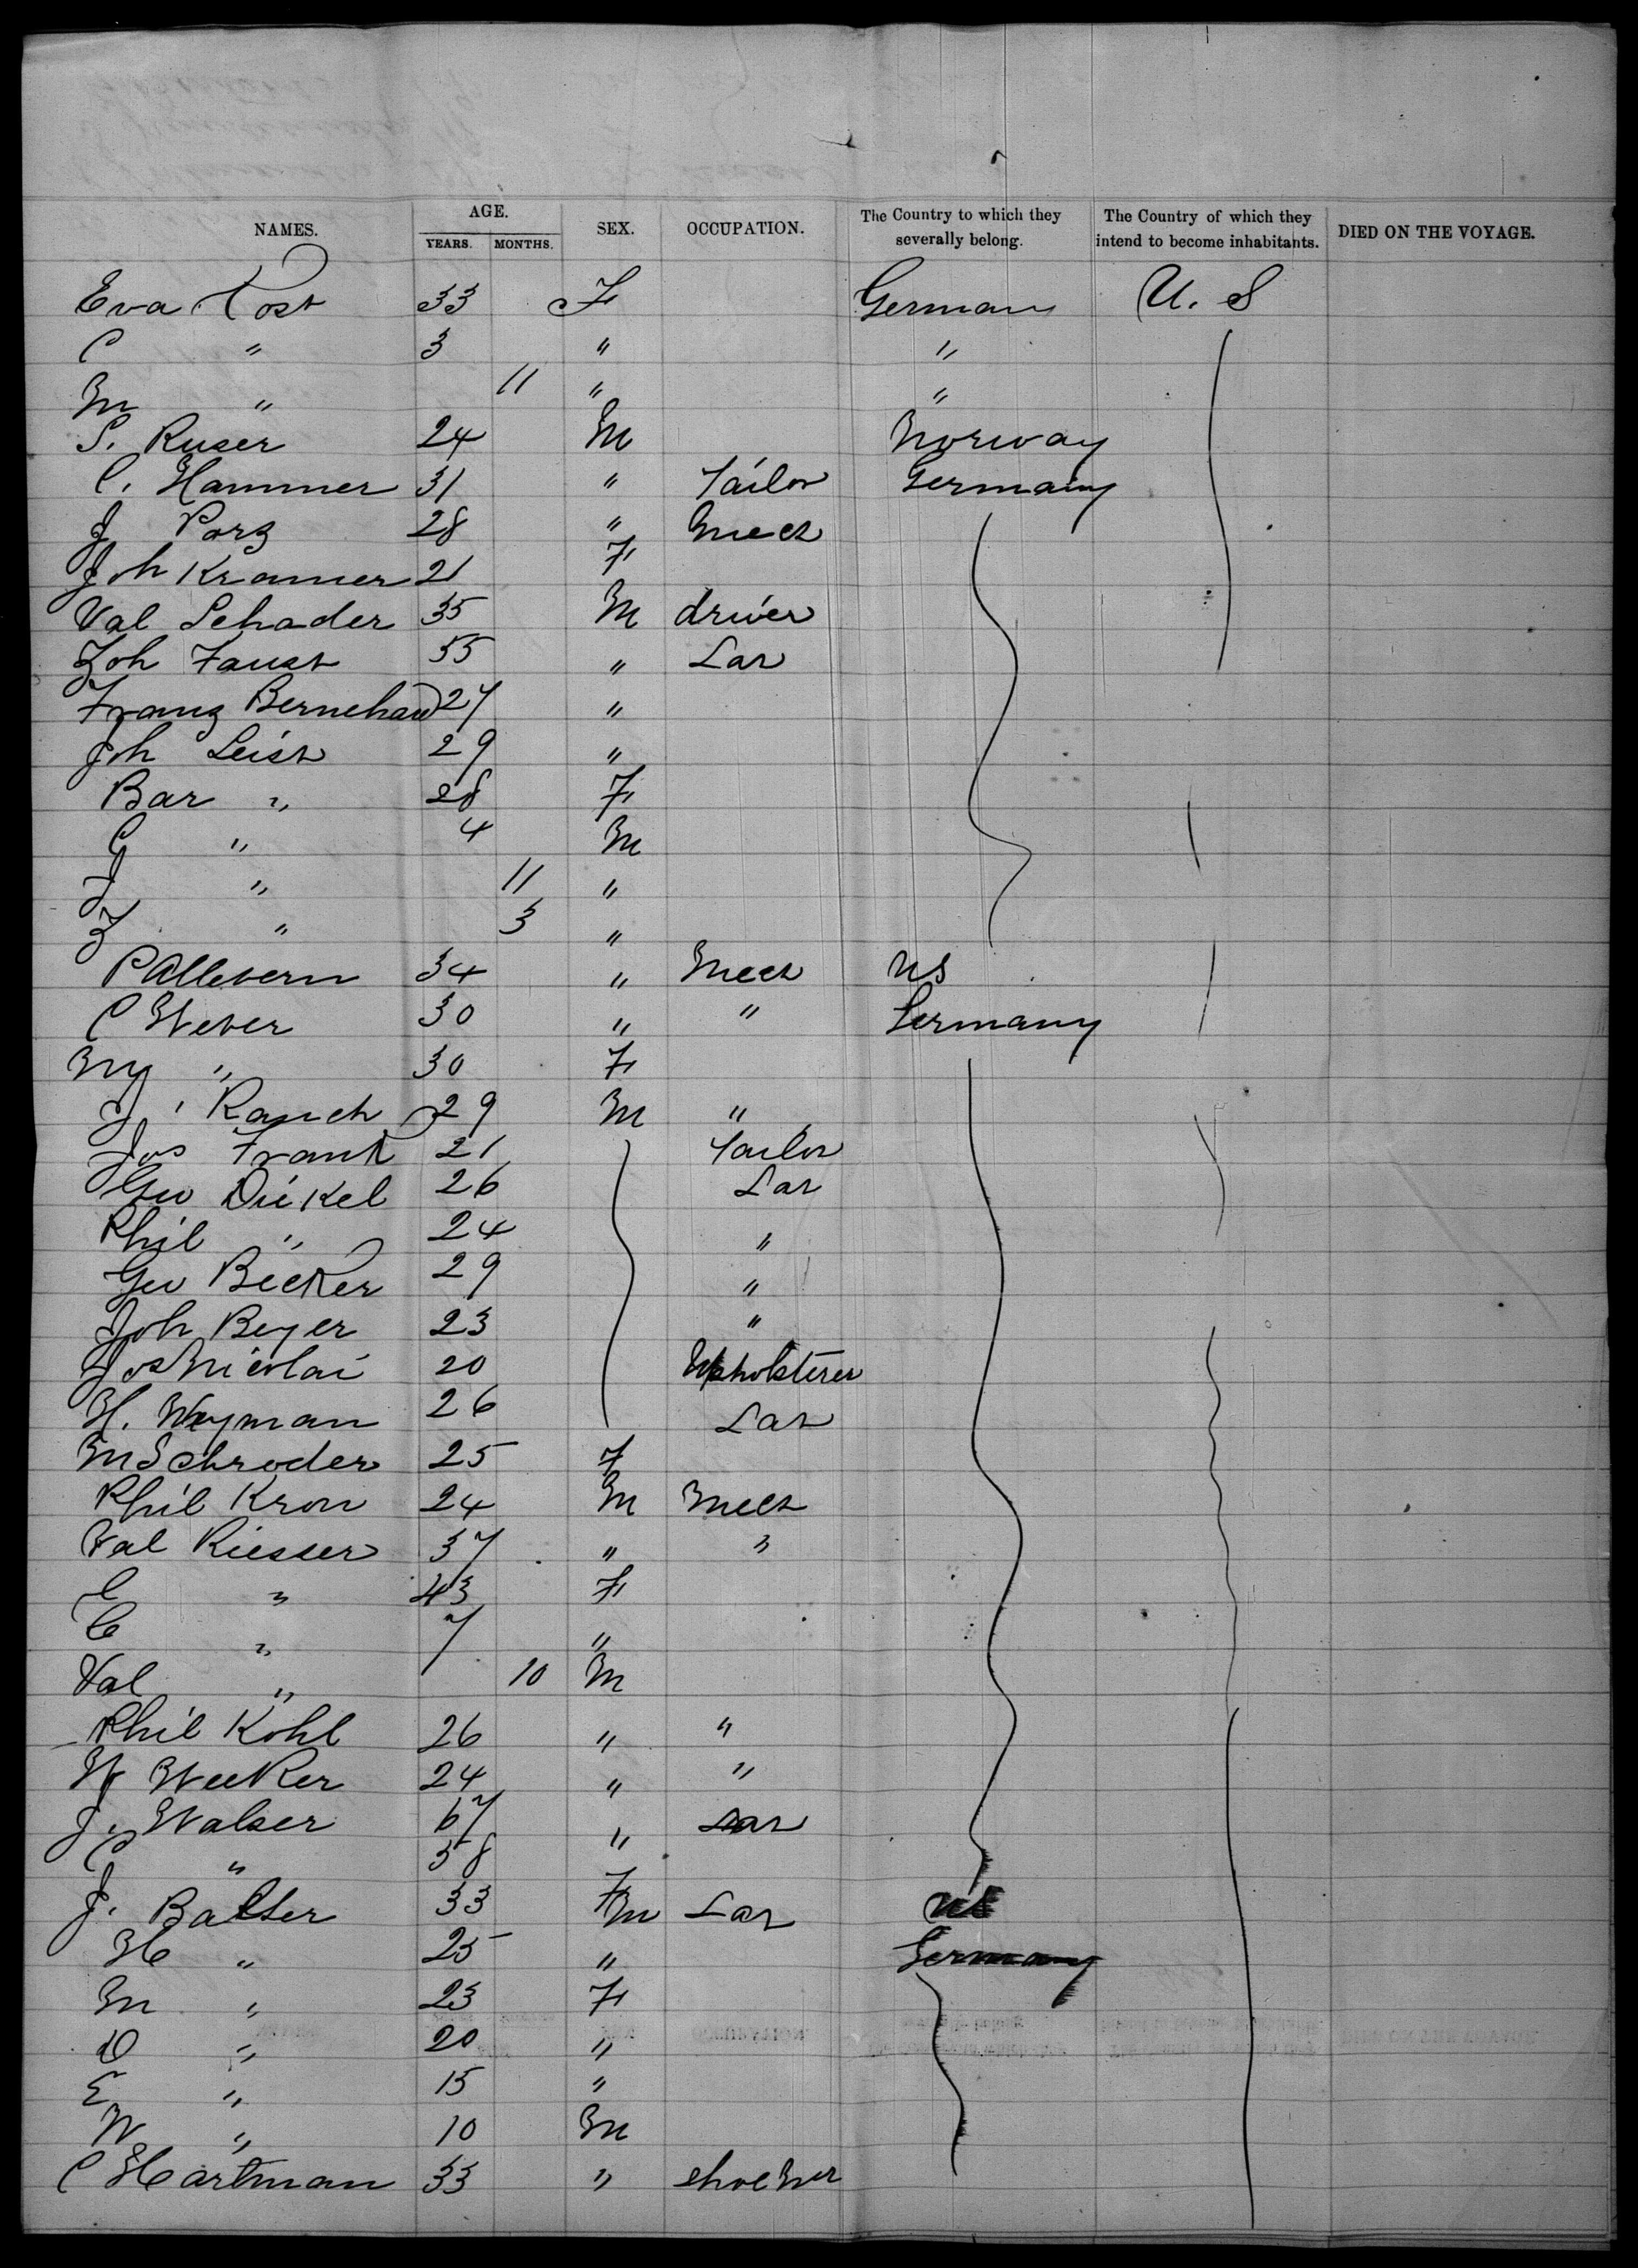 NAMES. AGE. YEARS. MONTHS. SEX. OCCUPATION. The Country to which they severally belong. The Country of which they intend to become inhabitants. DIED ON THE VOYAGE.
Eva Post 33 F German U. S
C " 3 " "
M " 11 " "
S. Ruser 24 M Norway
C. Hammer 31 " Tailor Germany
J Porz 28 " Mech
Joh Kramer 21 F
Val Schader 35 M driver
Joh Faust 55 " Lar
Franz Bernehard 27 "
Joh Leist 29 "
Bar " 28 F
C " 4 M
J " 11 "
J " 3 "
P Allevern 34 " Mech US
C Wever 30 " " Germany
My " 30 F
J. Rauch 29 M "
Jos Frank 21 Tailor
Geo Dickel 26 Lar
Phil " 24 "
Geo Becker 29 "
Joh Beyer 23 "
Jos Nicolai 20 Upholsterer
H. Weyman 26 Lar
M Schroder 25 F
Phil Kron 24 M Mech
Val Riesser 37 " "
E " 43 F
C " 7 "
Val " 10 M
Phil Kohl 26 " "
W Weeker 24 " "
J. Walser 67 " Lar
C " 58 F
J. Balser 33 M Lar US
H " 25 " Germany
M " 23 F
D " 20 "
E " 15 "
W " 10 M
C Hartman 33 " shoe Mr